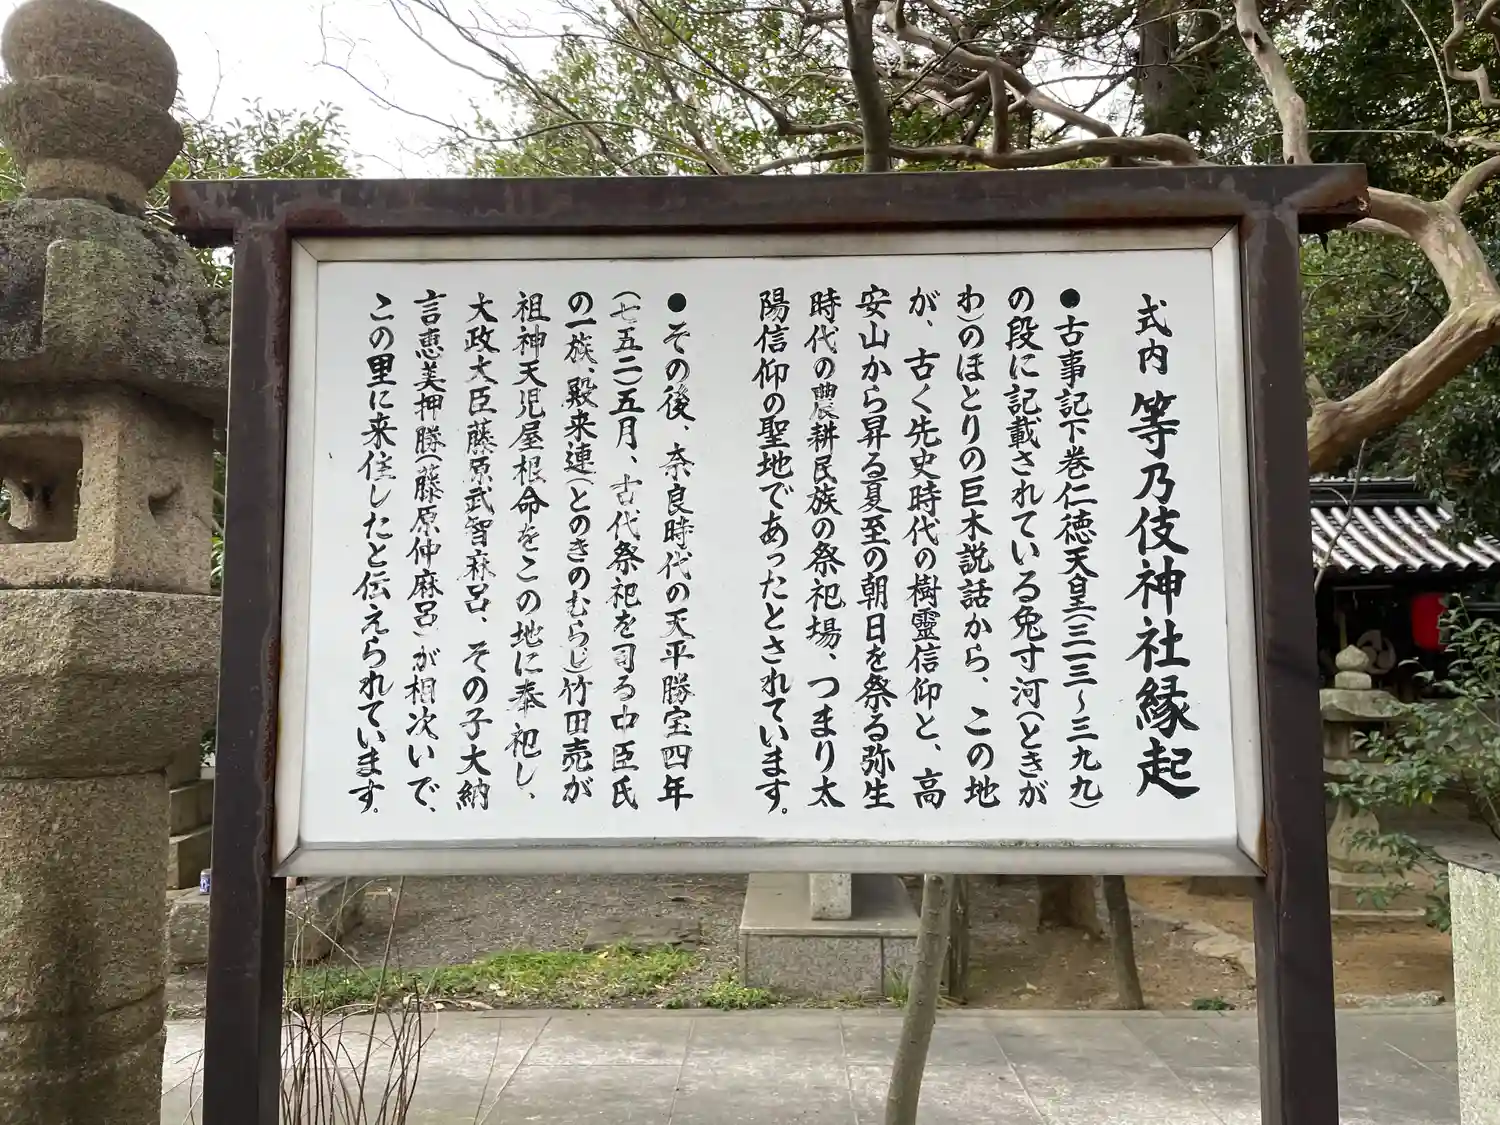 式内 等乃伎神社縁起
●古事記下巻仁徳天皇(三一三〜三九九)
の段に記載されている兔寸河(ときが
わ)のほとりの巨木説話から、この地
が、古く先史時代の樹靈信仰と、高
安山から昇る夏至の朝日を祭る弥生
時代の農耕民族の祭祀場、つまり太
陽信仰の聖地であったとされています。
●その後、奈良時代の天平勝宝四年
(七五二)五月、古代祭祀を司る中臣氏
の一族、殿来連(とのきのむらじ)竹田売が
祖神天児屋根命をこの地に奉祀し、
大政大臣藤原武智麻呂、その子大納
言恵美押勝(藤原仲麻呂)が相次いで、
この里に来住したと伝えられています。